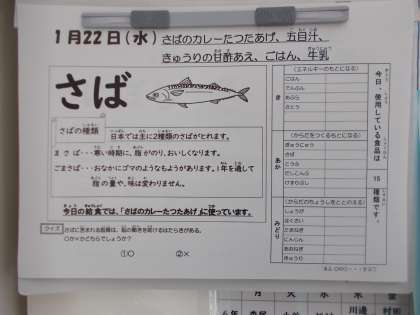 1月22日(水) さばのカレーたつたあげ、五目汁、
きゅうりの甘酢あえ、ごはん、牛乳
さば
さばの種類
日本では主に2種類のさばがとれます。
まさば・・・寒い時期に、脂がのり、おいしくなります。
ごまさば・・・おなかにゴマのようなもようがあります。1年を通して
脂の量や、味は変わりません。
今日の給食では、「さばのカレーたつたあげ」に使っています。
クイズ
○か×かどちらでしょうか?
①○ ②×
今日、使用している食品は
15
種類です。
き
(エネルギーのもとになる)
ごはん
でんぷん
あぶら
さとう
あか
(からだをつくるもとになる)
さば
ぎゅうにゅう
とうふ
だしこんぶ
けずりぶし
みどり
(からだのちょうしをととのえる)
しょうが
はくさい
たまねぎ
にんじん
あおねぎ
きゅうり
月 火 水 木 金
川邊